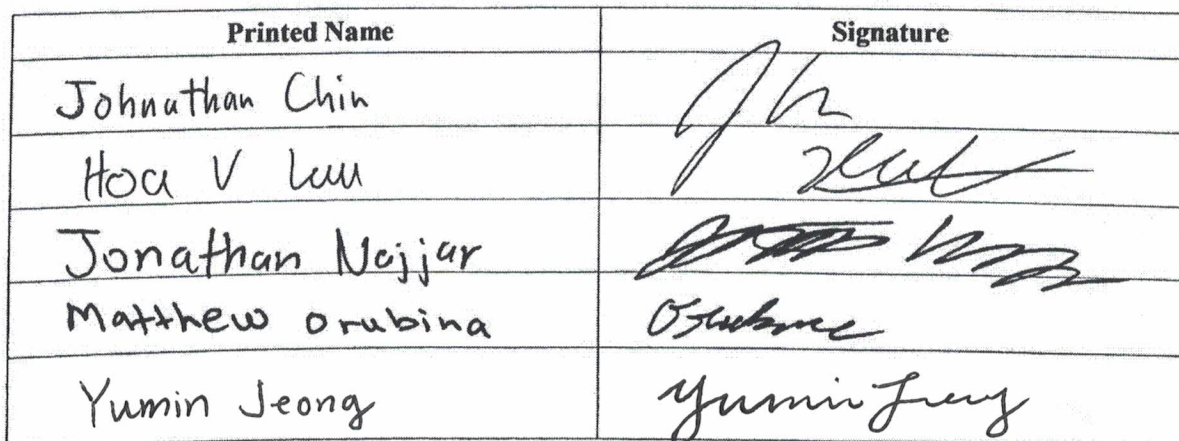 Printed Name Signature
Johnathan Chin
Hoa V Luu
Jonathan Najjar
Matthew orubina
Yumin Jeong Yumin Jeong